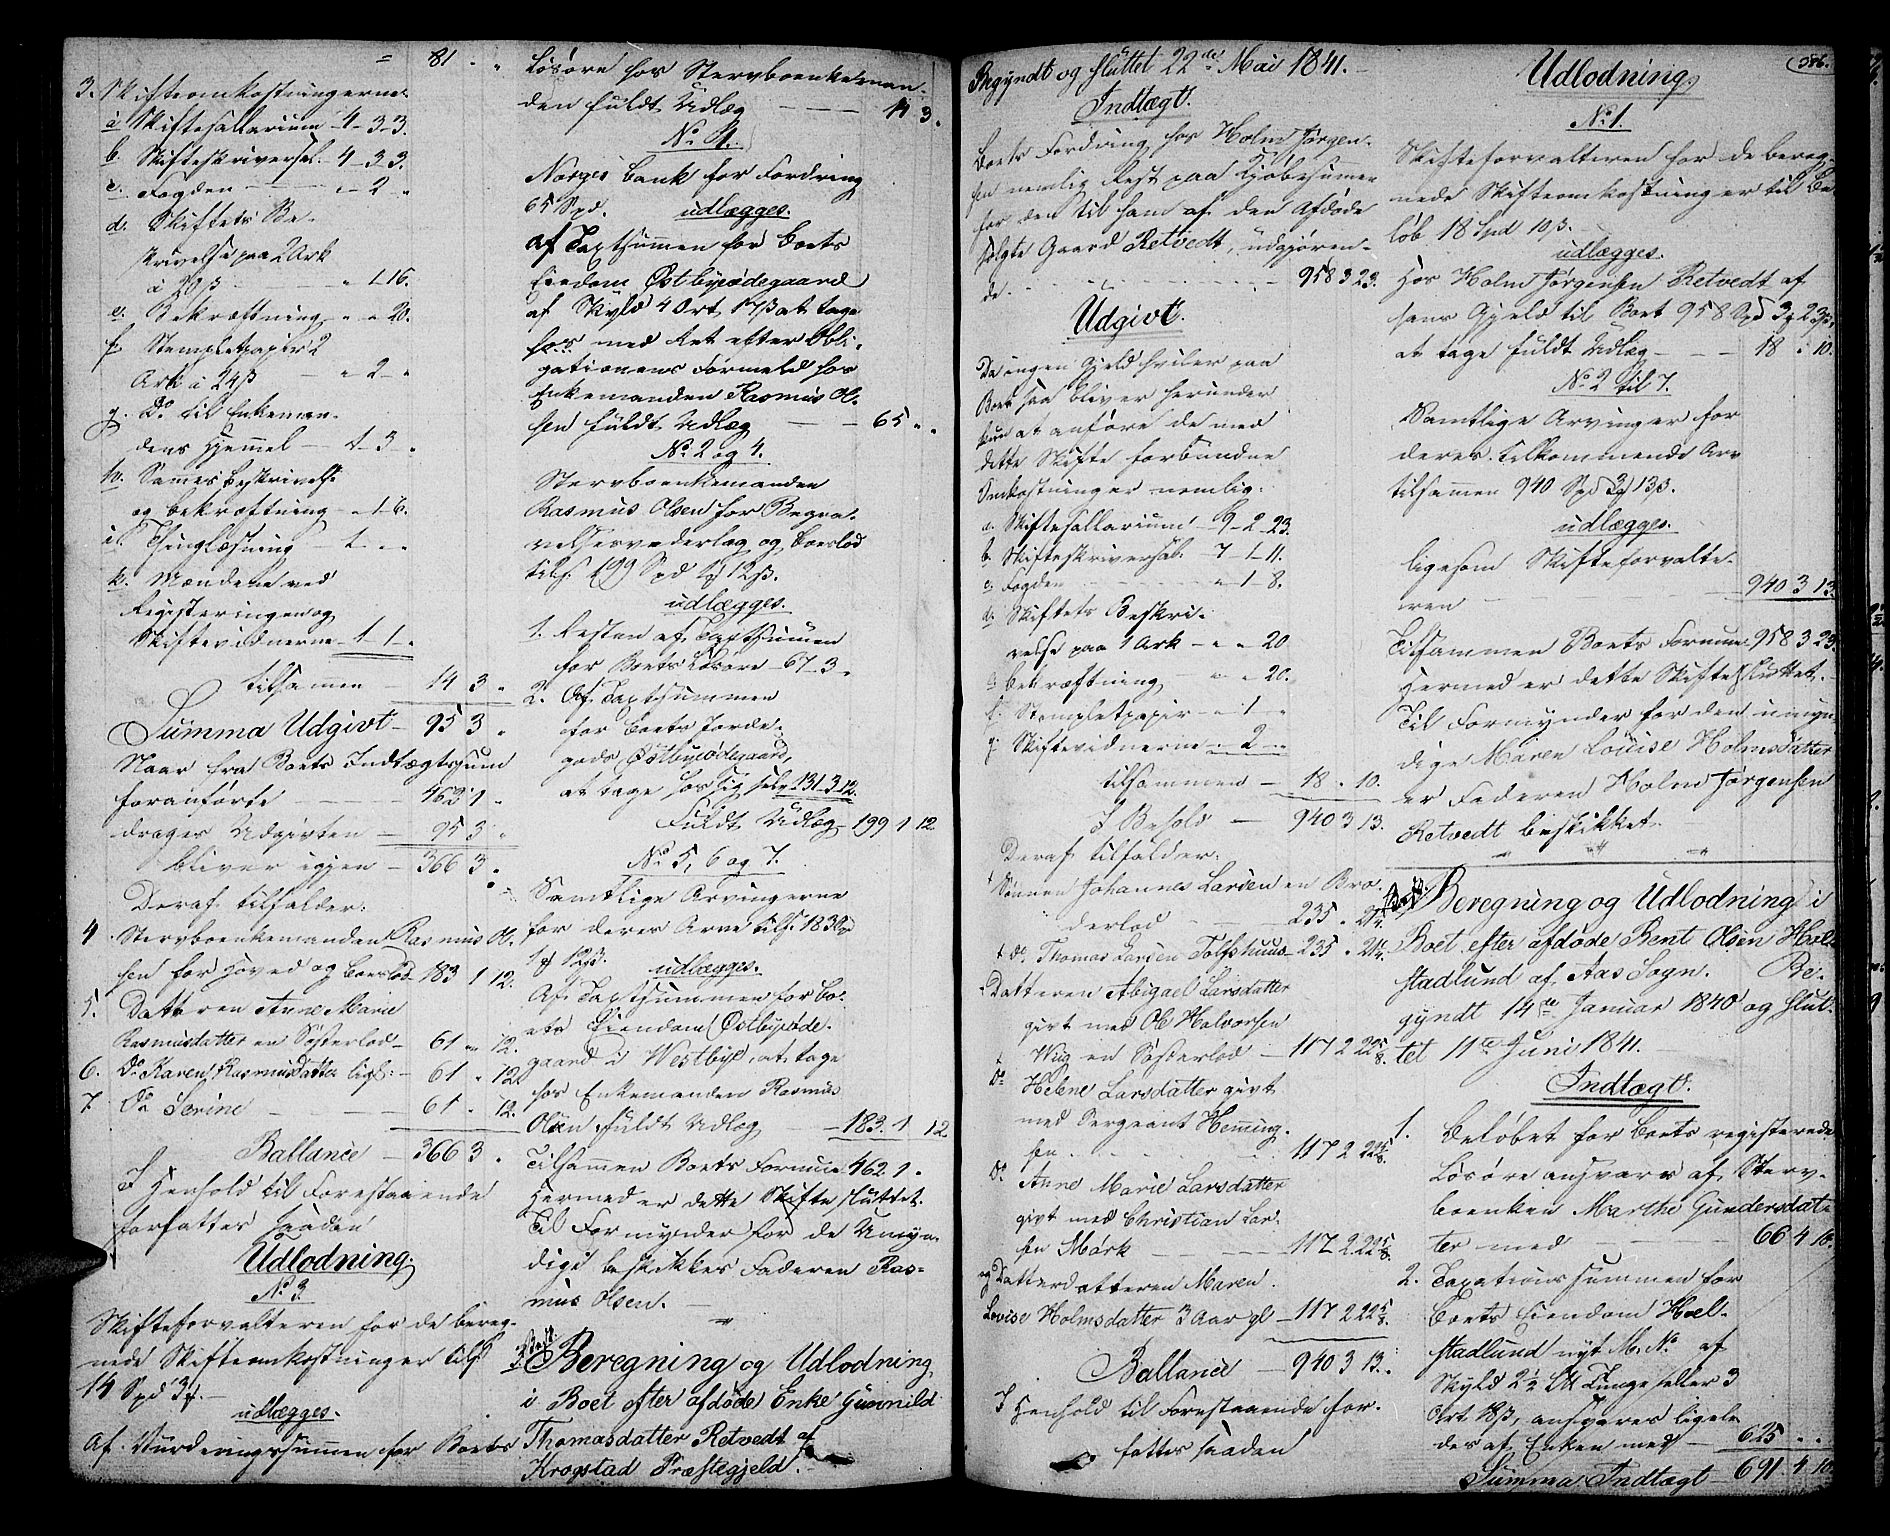 = 81 " "
3. Skifteomkostningerne
a Skiftesallarium 4-3-3.
b. Skifteskriversal. 4-3 3.
c. Fogden - " -2 "
d. Skiftets Be-
skrivelse paa 2 Ark
à 20 β " 1.16.
e. Bekræftning " " 20.
f. Stempletpapir 2
Ark à 24 β - " 2 - "
g. Do til Enkeman-
dens Hjemmel - 1-3 - "
h. Sammes Beskrivelse
og bekræftning - " 1-6.
i. Thinglæsning - 1 - " "
k. Mændene ved
Registeringen og
Skiftevidnerne - 1-1 "
tilsamen 14 3 "
Summa Udgivt - 95 3 "
Naar fra Boets Indtægtssum
foranførte 462 1 "
drages Udgivten - 95 3 "
bliver igjen - 366 3 "
Deraf tilfalder:
4 Stervboenkemanden Rasmus Ol-
sen for Hoved og Boeslod 183 1 12.
5. Datteren Anne Marie
Rasmusdatter en Søsterlod - 61 " 12.
6. Do Karen Rasmusdatter lige: - 61 " 12.
7. Do Serine 61 " 12.
Ballance - 366 3 "
I Henhold til Forestaaende
forfattes saadan
Udlodning.
No 3.
Skifteforvalteren for de bereg-
nede Skifteomkostninger tils.
14 Spd 3 ƒ.
udlægges.
Af Vurderingssummen for Boets
Løsøre hos Stervboenkeman-
den fuldt Udlæg 14 3 "
No 1.
Norges Bank for Fordring
65 Spd. udlægges.
Af Taxtsummen for Boets
Eiendom Østbyeødegaard
af Skyld 4 Ort 17 β at tage
hos med Ret efter Obli-
gationens Formeld hos
Enkemanden Rasmus Ol-
sen fuldt Udlæg - 65 " "
No 2 og 4.
Stervboenkemanden
Rasmus Olsen for Begra-
velsesvederlag og Boeslod
tils. 199 Spd 1 ƒ 12 β.
udlægges.
1. Resten af Taxtsummen
for Boets Løsøre - 67-3 "
2. Af Taxtsummen
for Boets Jorde-
gods Østbyeødegaard,
at tage hos sig selv 131-3 12.
Fuldt Udlæg - 199 1 12
No 5, 6 og 7.
Samtlige Arvingerne
for deres Arve tils. 183 Spd
1 ƒ 12 β.
udlægges.
Af Taxtsummen for Bo-
ets Eiendom Østbyøde-
gaard i Westbye, at tage
hos Enkemanden Rasmus
Olsen fuldt Udlæg 183. 1 12
Tilsamen Boets Formue 462 1 "
Hermed er dette Skifte sluttet.
Til Formynder for de Umyn-
dige beskikkes Faderen Ras-
mus Olsen.
Beregning og Udlodning
i Boet efter afdøde Enke Gunnild
Thomasdatter Retvedt af
Krogstad Præstegjeld.
586.
Begyndt og sluttet 22de Mai 1841.
Indtægt.
Boets Fordring hos Holm Jørgen-
sen nemlig Rest paa Kjøbesumen
for den til ham af den Afdøde
solgte Gaard Retvedt, udgjøren-
de 958 3 23.
Udgivt.
Da ingen Gjeld hviler paa
Boet saa bliver herunder
kun at anføre de med
dette Skifte forbundne
Omkostninger nemlig:
a. Skiftesallarium - 9-2-23.
b. Skifteskriversal. 7-1-11.
c. Fogden " 1 8.
d. Skiftets Beskri-
velse paa 1 Ark - " " 20
e. bekræftning " " 20.
f. Stempletpapir - " 1 "
g. Skiftevidnerne " 2 "
tilsammen - 18 " 10.
I Behold - 940 3 13.
Deraf tilfalder:
Sønnen Johannes Larsen en Bro-
derlod 235 " 21 1/4.
do Thomas Larsen Tolfshuus - 235 " 21 1/4.
Datteren Abigael Larsdatter
givt med Ole Halvorsen
Wiig en Søsterlod - 117 2 22 5/8.
Do Helene Larsdatter givt
med Sergeant Heming-
sen 117 2 22 5/8.
Do Anne Marie Larsdatter
givt med Christian Lar-
sen Mørk 117 2 22 5/8.
og Datterdatteren Maren
Lovise Holmsdatter 3 Aar gl - 117 2 22 5/8.
Ballance - 940 3 13.
I Henhold til Forestaaende for-
fattes saadan
Udlodning.
No 1.
Skifteforvalteren for de bereg-
nede Skifteomkostninger til Be-
løb 18 Spd 10 β.
udlægges.
Hos Holm Jørgensen Retvedt af
hans Gjeld til Boet 958 Spd 3 ƒ 23 β,
at tage fuldt Udlæg - 18 " 10.
No 2 til 7.
Samtlige Arvinger for
deres tilkommende Arv
tilsammen 940 Spd 3 ƒ 13 β.
udlægges.
ligesom Skifteforvalte-
ren 940 3 13.
Tilsammen Boets Formue 958 3 23.
Hermed er dette Skifte sluttet.
Til Formynder for den umyn-
dige Maren Louise Holmsdatter
er Faderen Holm Jørgensen
Retvedt beskikket.
Beregning og Udlodning i
Boet efter afdøde Bent Olsen Hol-
stadlund af Aas Sogn. Be-
gyndt 14de Januar 1840 og slut-
tet 11te Juni 1841.
Indtægt.
1. Beløbet for Boets registerede
Løsøre ansvares af Sterv-
boenken Marthe Gundersdat-
ter med 66 4 10.
2. Taxationssummen for
Boets Eiendom Hol-
stadlund nyt M. No af
Skyld 2 1/2 L℔ Tunge eller 3
Ort 18 β, ansvares ligele-
des af Enken med 625 " "
Summa Indtægt - 691 4 10